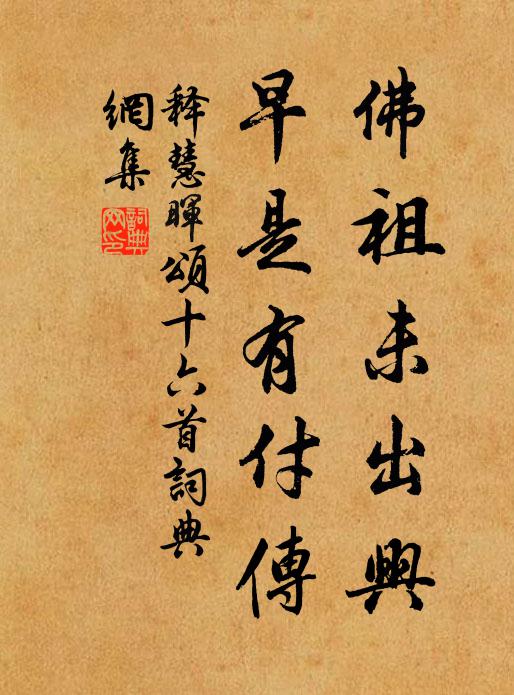 佛祖未出興
早是有付傳
释慧暉頌十六首詞典
網集
詞典
网印